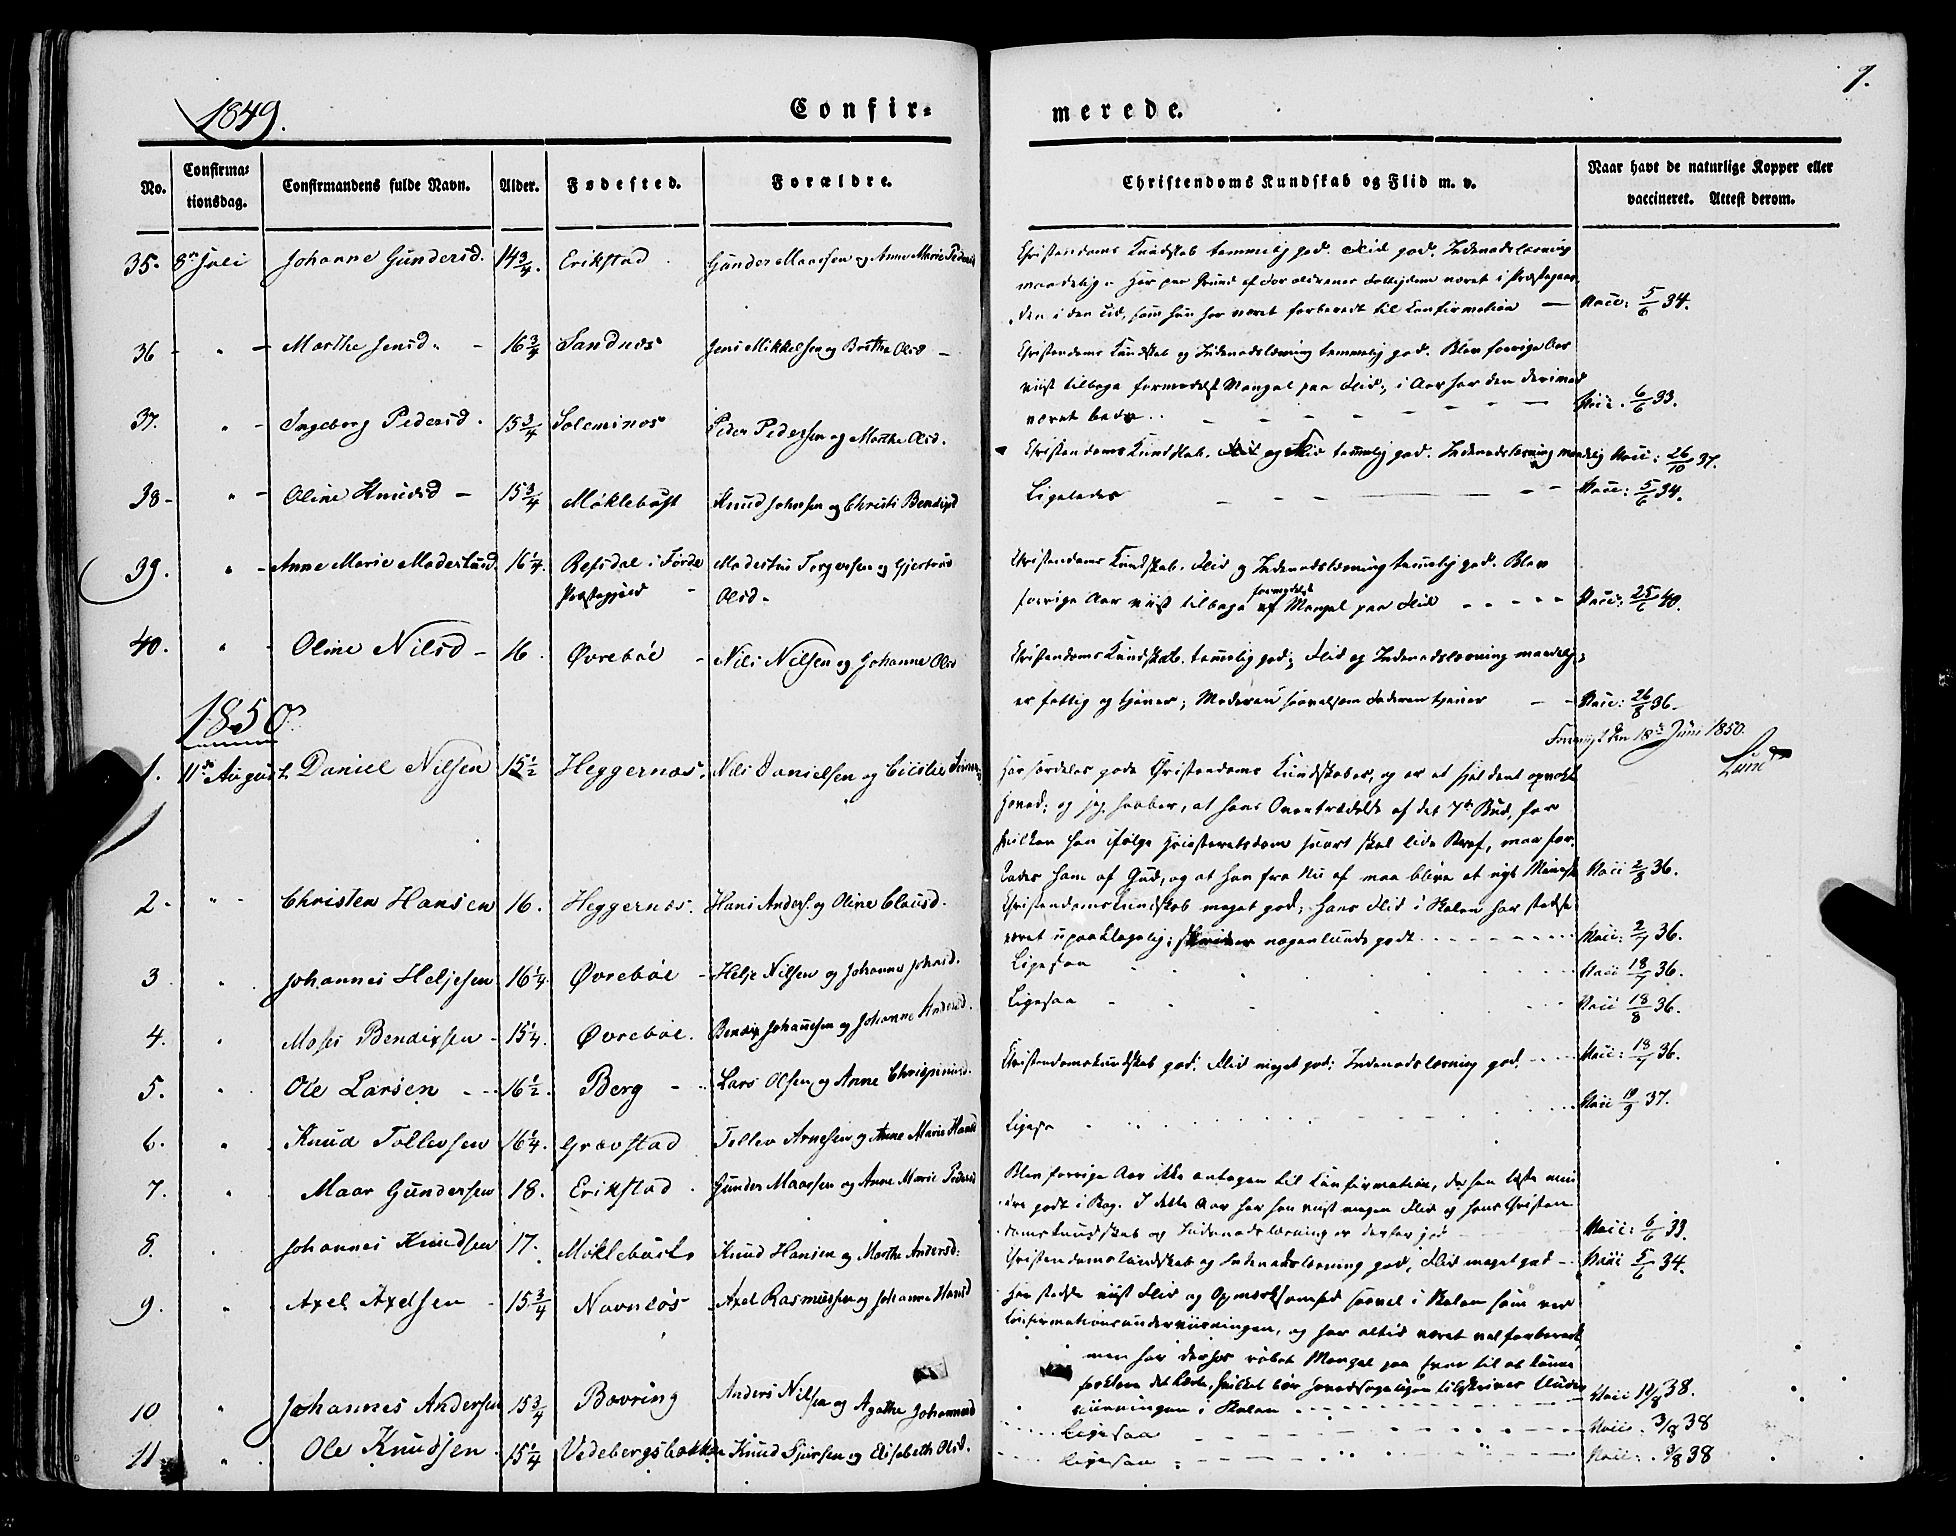 1849.
Confir= merede.
9.
No.
Confirmationsdag.
Confirmandens fulde Navn.
Alder.
Fødested.
Forældre.
Christendoms Kundskab og Flid m. v.
Naar havt de naturlige Kopper eller
vaccineret. Attest derom.
35. 8de Juli Johanne Gundersd. 14 3/4. Erikstad. Gunder Maarsen og Anne Marie Pedersd
Christendoms Kundskab temmelig god. Flid god. Indenadslæsning
maadelig. Har paa Grund af Forældrenes Fattigdom været i Præstegaar-
den i den Tid, som hun har været forberedt til Confirmation — Vacc: 5/6 34.
36 - " - Marthe Jensd. - 16 3/4 Sandnes Jens Mikkelsen og Berthe Olsd -
Christendoms Kundskab og Indenadslæsning temmelig god. Blev forrige Aar
viist tilbage formedelst Mangel paa Flid; i Aar har den derimod
været bedre. Vacc. 6/6 33.
37. " - Ingeborg Pedersd. 15 3/4 Soleminos Peder Pedersen og Marthe Olsd.
Christendoms Kundskab og Flid temmelig god. Indenadslæsning maadelig Vacc: 26/10 37.
38 - " - Oline Knudsd - 15 3/4 Møklebust Knud Johnsen og Christi Bendixd
Ligeledes Vacc: 5/6 34.
39. " - Anne Marie Madestusd. 16 1/4. Refsdal i Førde Madestus Torgersen og Gjertrud
Præstegjeld - Olsd -
Christendoms Kundskab, Flid og Indenadslæsning temmelig god. Blev
forrige Aar viist tilbage formedelst Mangel paa Flid Vacc: 25/6 40.
40. " - Oline Nilsd - 16. Øvrebøe - Nils Nilsen og Johanne Olsd
Christendoms Kundskab temmelig god; Flid og Indenadslæsning maadelig;
er fattig og tjener; Moderen saavelsom Faderen tjener Vacc: 26/8 36.
1850.
den 18de Juni 1850.
Lund
1. 11te August. Daniel Nilsen 15 1/2 Heggernæs. Nils Danielsen og Cicilie
Har særdeles gode Christendoms Kundskaber, og er et sjeldent opvakt
Hoved; og jeg haaber, at hans Overtrædelse af det 7de Bud, for
hvilken han ifølge Høiesteretsdom snart skal lide Straf, maa for-
lades ham af Gud, og at han fra Nu af maa blive et nyt Menneske Vacc 2/8 36.
2 - " - Christen Hansen 16. Heggernæs. Hans Anders. og Oline Clausd.
Christendomskundskab meget god; hans Flid i Skolen har stedse
været upaaklagelig; nogenlunde godt Vacc: 2/7 36.
3 " Johannes Heljesen 16 1/4. Øvrebøe - Helje Nilsen og Johanne Johnsd.
Ligesaa Vacc 18/7 36.
4. " Moses Bendixsen - 15 1/4. Øvrebøe. Bendix Johannesen og Johanne Andersd.
Ligesaa Vacc 18/8 36.
5. " Ole Larsen 16 1/2. Berg - Lars Olsen og Anne
Christendomskundskab god; Flid meget god; Indenadslæsning god. Vacc: 18/7 36.
6. " Knud Tollevsen 16 1/4. Gravstad Tollev Arnesen og Anne Marie Hansd
Ligesaa Vacc 10/9 37.
7. " Maar Gundersen 18. Erikstad. Gunder Maarsen og Anne Marie Pedersd
Blev forrige Aar ikke antagen til Confirmation, da han læste min-
dre godt i Bog. I dette Aar har han viist megen Flid og hans Christen-
domskundskab og Indenadslæsning er derfor god Vacc: 6/6 33.
8. " Johannes Knudsen 17. Møklebust. Knud Hansen og Marthe Andersd.
Christendomskundskab og Indenadslæsning god; Flid meget god Vacc 5/6 34.
9. " Axel Axelsen - 15 3/4 Navnløs - Axel Rasmussen og Johanne Hansd
Har stedse viist Flid og Opmærksomhed saavel i Skolen som ved
Confirmationsunderviisningen, og har altid været vel forberedt,
men har derhos røbet Mangel paa Evne til at kunne
forklare det Lærte, hvilket bør hovedsageligen tilskrives Under-
viisningen i Skolen Vacc 11/8 38.
10 " Johannes Andersen 15 3/4 Bovring Anders Nilsen og Agathe Johannesd
Ligesaa Vacc. 3/8 38
11 - " Ole Knudsen 15 1/4 Vedebergsbakken Knud og Elisabeth Olsd.
Ligesaa Vacc. 3/8 38